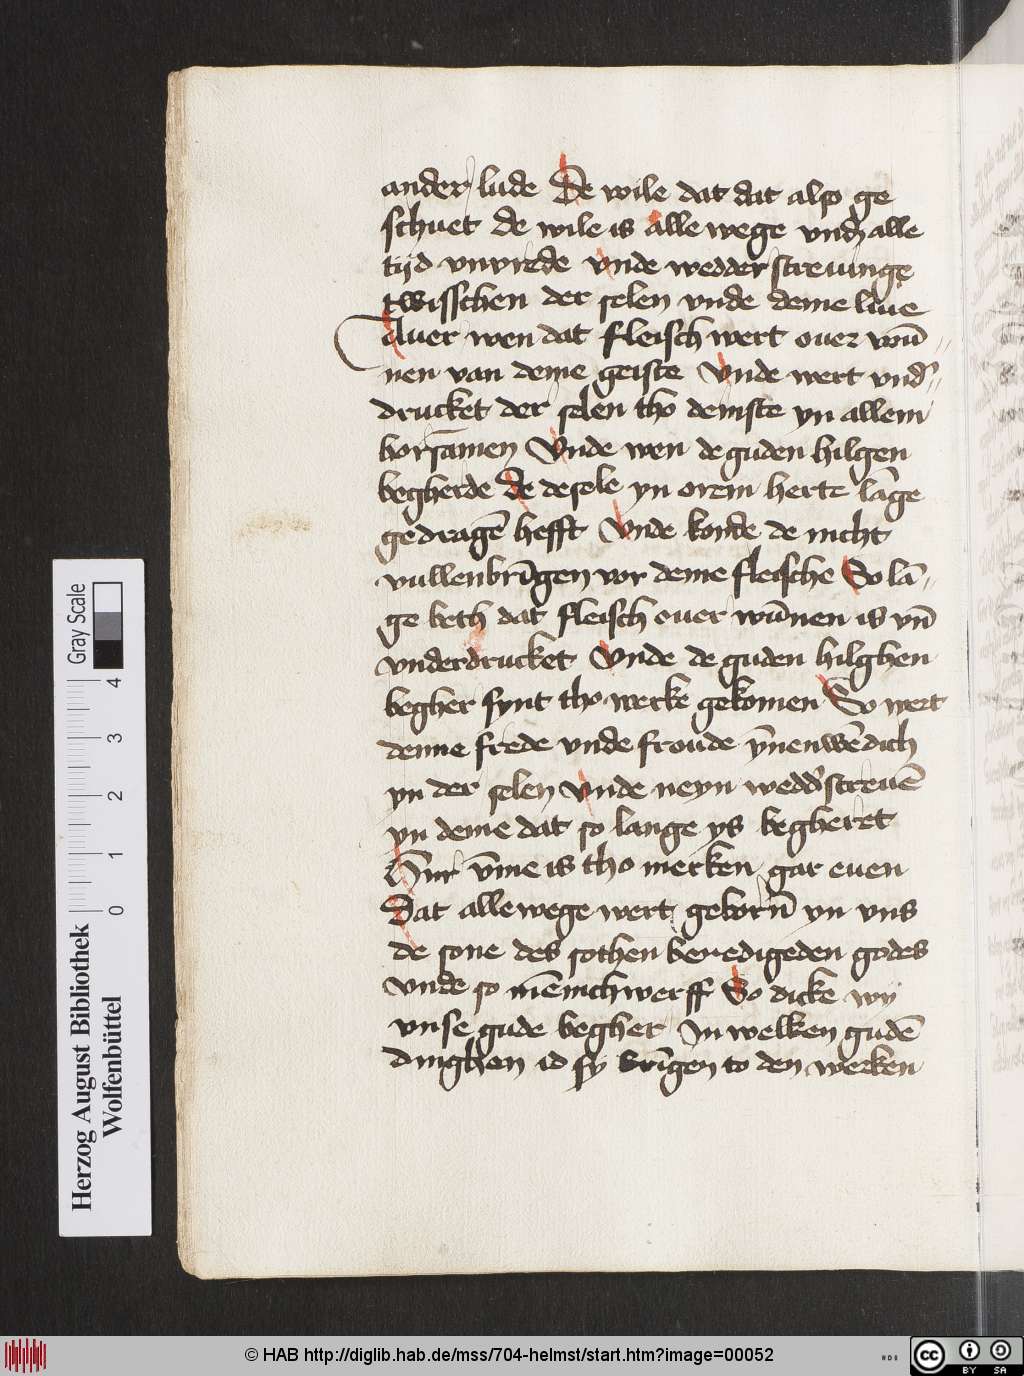 ander lude De wile dat dat also ge
schuet de wile is alle wege vnd alle
tijd vnvrede vnde wedder streuinge
twisschen der selen vnde deme liue
Auer wen dat fleisch wert ouer wū⸗
nen van deme geiste Vnde wert vnd'⸗
drucket der selen tho denste yn allem
horsamen Vnde wen de guden hilgen
begherde de de sele yn orem herte lāge
gedragē hefft Vnde konde de nicht
vullenbrīgen vor deme fleische So lā⸗
ge beth dat fleisch ouer wūnen is vn̄
vnderdrucket Vnde de guden hilghen
begher synt tho werke gekomen So wert
denne frede vnde froude ȳnenwēdich
yn der selen Vnde neyn wedd'streuē
yn deme dat so lange ys begheret
Hir v̄me is tho merken gar euen
Dat alle wege wert geborn̄ yn vns
de sone des sothen benedigeden godes
Vnde so mēnich werff So dicke wy
vnse gude begher In welken gudē
dinghen id sy brīgen to den werken
Herzog August Bibliothek
Wolfenbüttel
0 1 2 3 4
Gray Scale
© HAB http://diglib.hab.de/mss/704-helmst/start.htm?image=00052
cc BY SA